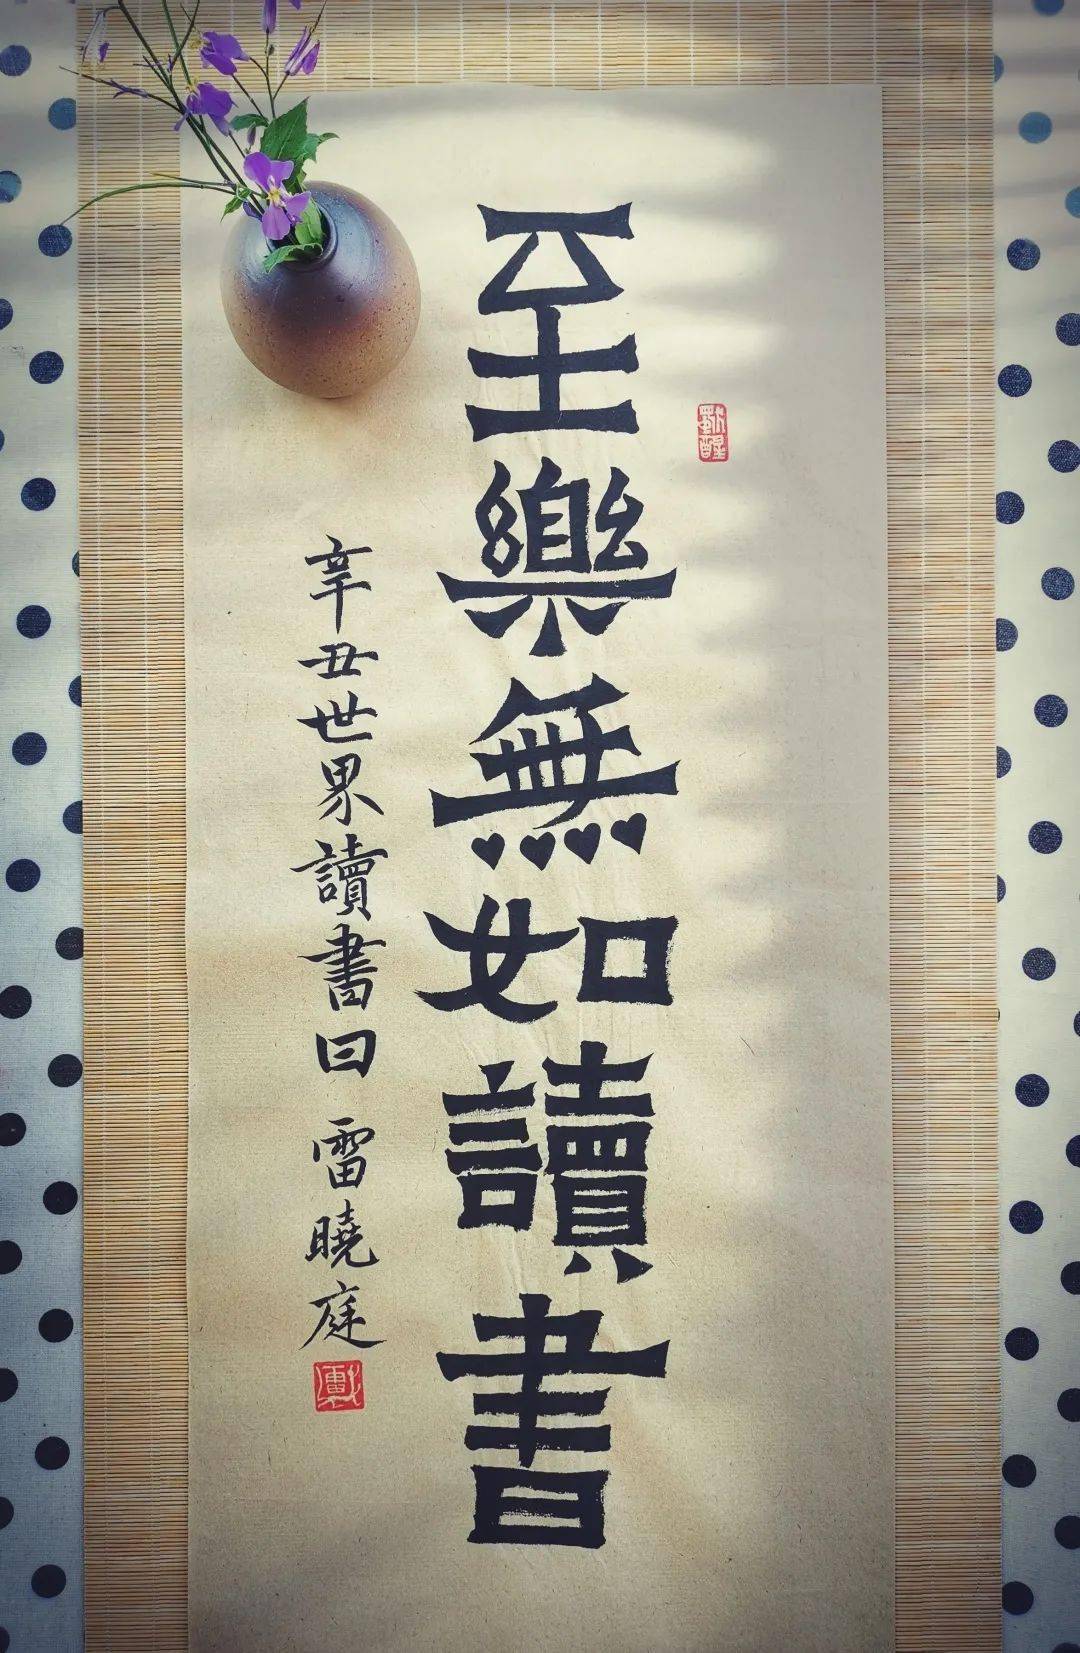 至樂無如讀書
辛丑世界讀書日 雷曉庭